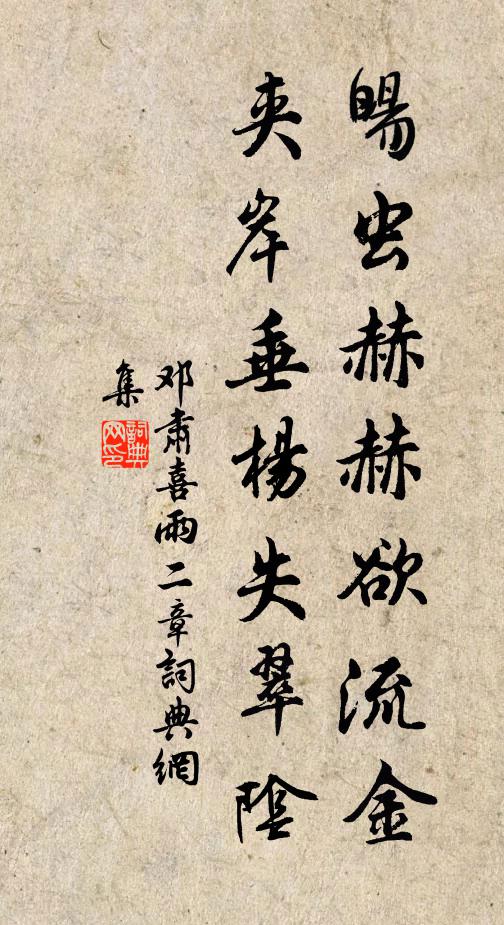 暘虫赫赫欲流金
夾岸垂楊失翠陰
邓肅喜雨二章詞典網
集
詞典
网印